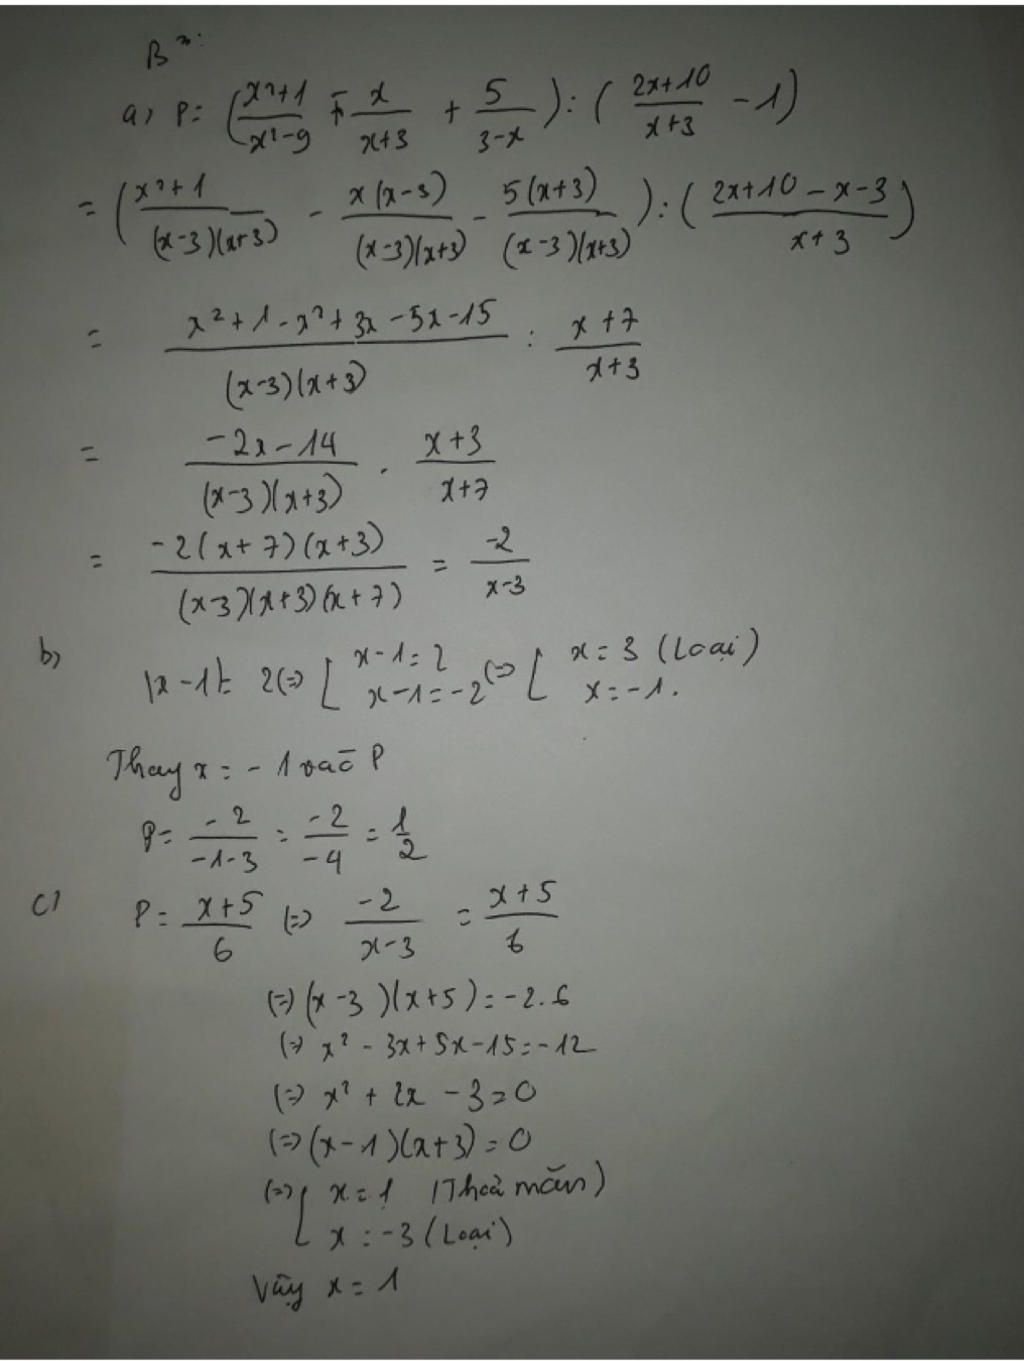 B³:
a) P = (x²+1/x²-9 - x/x+3 + 5/3-x) : (2x+10/x+3 - 1)
= (x²+1/(x-3)(x+3) - x(x-3)/(x-3)(x+3) - 5(x+3)/(x-3)(x+3)) : (2x+10-x-3/x+3)
= x²+1-x²+3x-5x-15/(x-3)(x+3) : x+7/x+3
= -2x-14/(x-3)(x+3) . x+3/x+7
= -2(x+7)(x+3)/(x-3)(x+3)(x+7) = -2/x-3
b) |x-1| = 2 (=) [ x-1=2 (=) [ x=3 (Loại)
x-1=-2 x=-1.
Thay x = -1 vào P
P = -2/-1-3 = -2/-4 = 1/2
c) P = x+5/6 (=) -2/x-3 = x+5/6
(=) (x-3)(x+5) = -2.6
(=) x² - 3x+5x-15=-12
(=) x² + 2x - 3 = 0
(=) (x-1)(x+3) = 0
(=) [ x=1 (Thoả mãn)
x = -3 (Loại)
Vậy x = 1